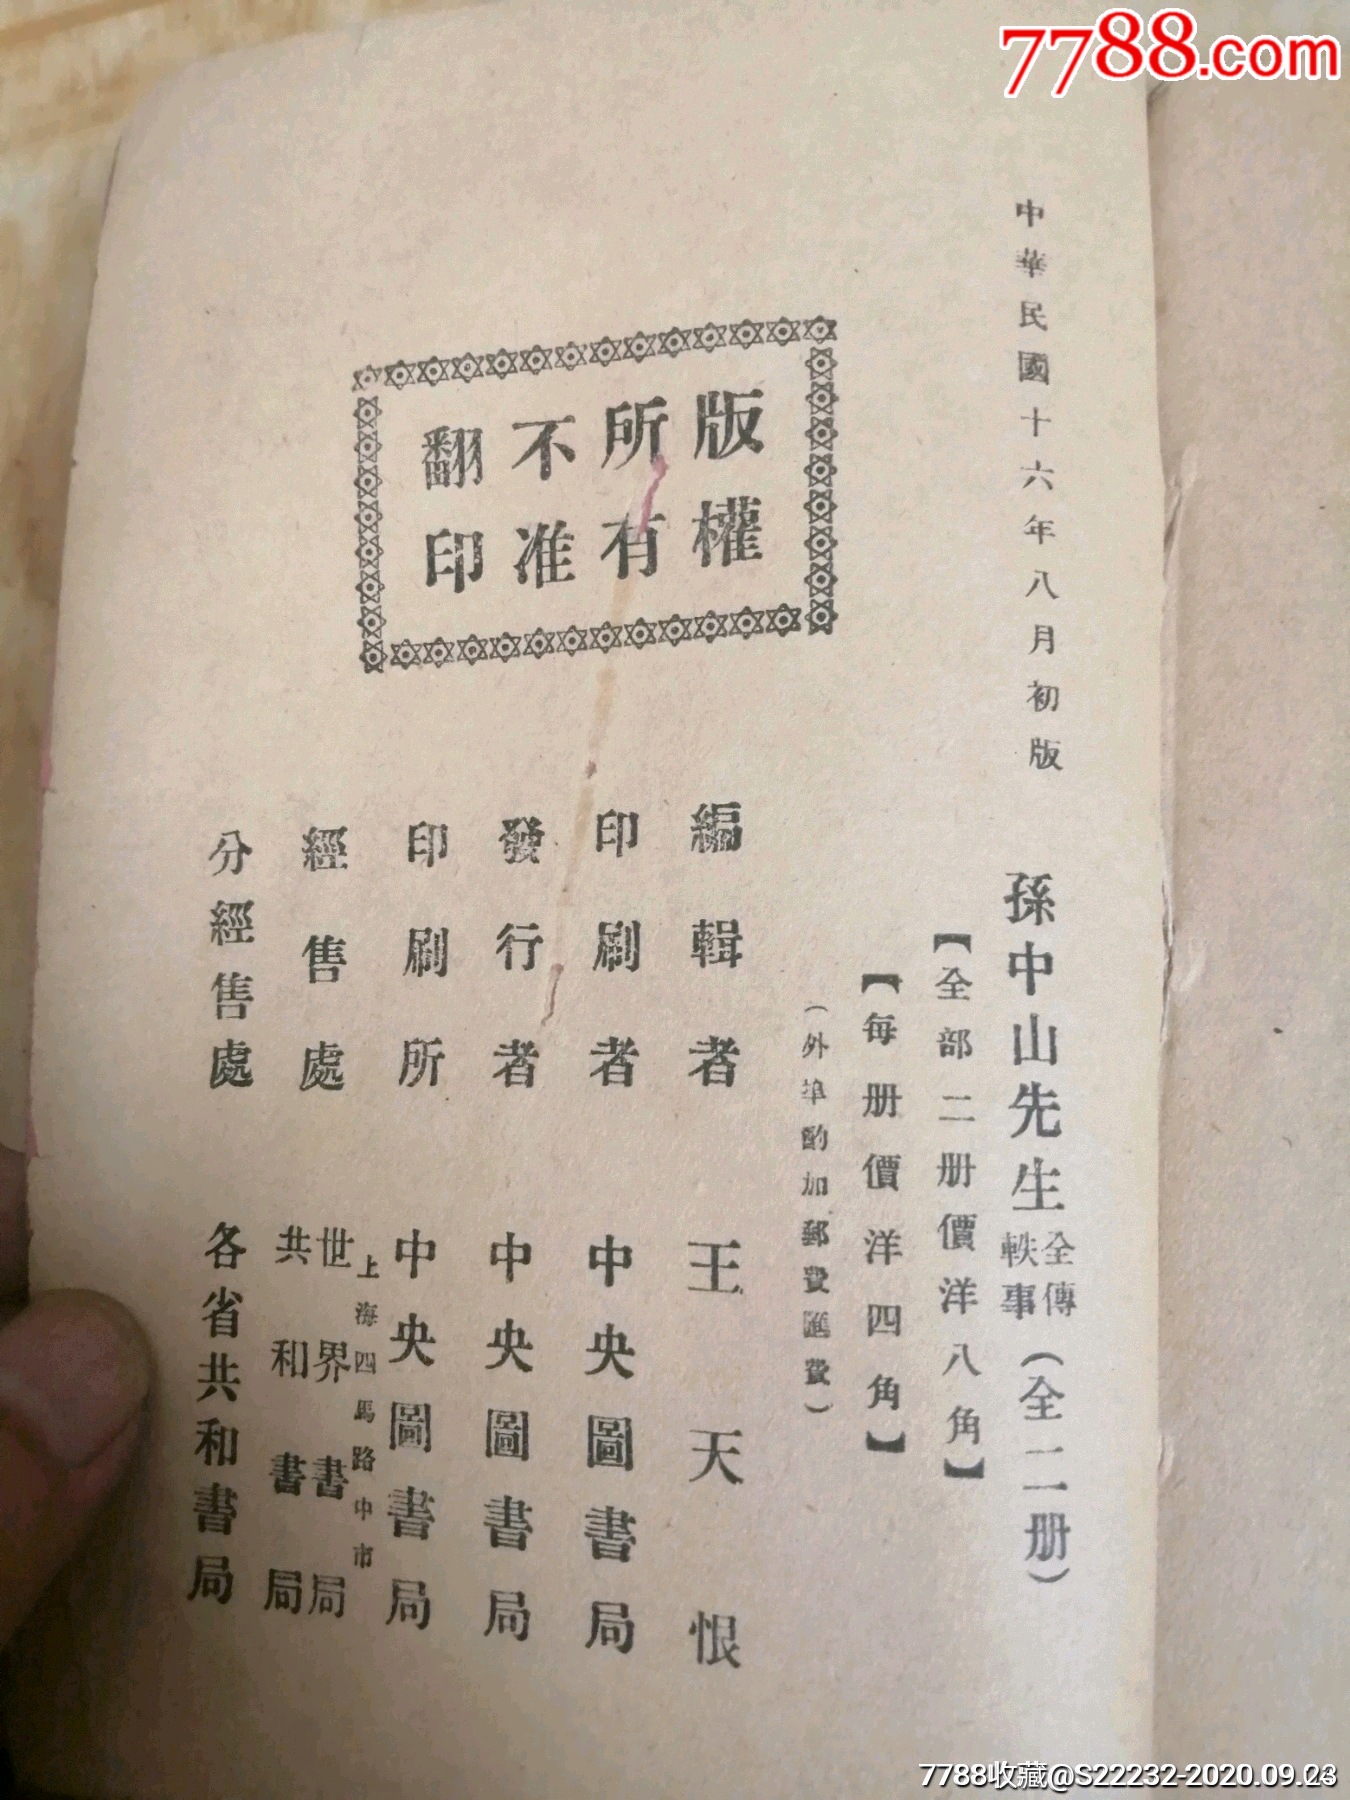 7788.com
中華民國十六年八月初版
孫中山先生全傳
軼事（全二册）
【全部二册價洋八角】
【每册價洋四角】
（外埠酌加郵費匯費）
版權
所有
不准
翻印
編輯者 王天恨
印刷者 中央圖書局
發行者 中央圖書局
印刷所 中央圖書局
上海四馬路中市
經售處 世界書局
共和書局
分經售處 各省共和書局
7788收藏@S22232-2020.09.23